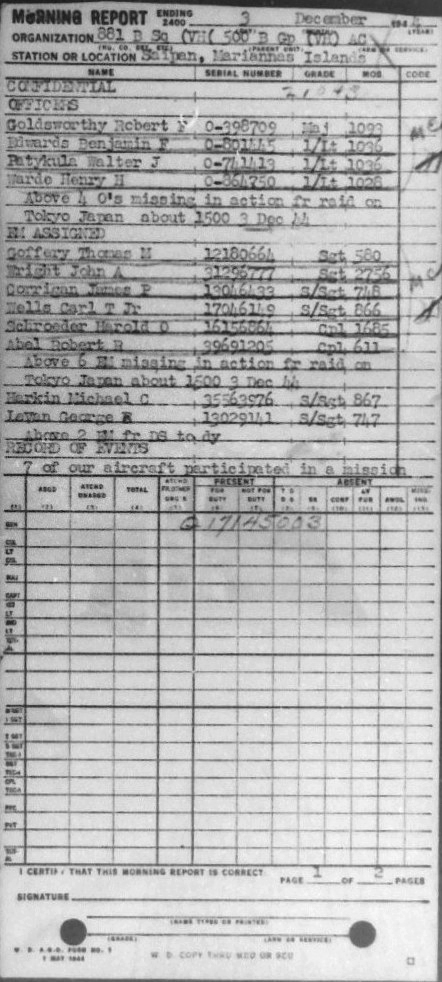 MORNING REPORT ENDING 2400 3 December 1944
ORGANIZATION 881 B Sq (VH( 500 B Gp (VH) AC
STATION OR LOCATION Saipan, Mariannas Islands
NAME SERIAL NUMBER GRADE MOS CODE
CONFIDENTIAL
OFFICERS
Goldsworthy Robert F 0-398709 Maj 1093
Edwards Benjamin F 0-801445 1/Lt 1036
Patykula Walter J 0-741413 1/Lt 1036
Warde Henry H 0-864750 1/Lt 1028
Above 4 O's missing in action fr raid on
Tokyo Japan about 1500 3 Dec 44
EM ASSIGNED
Goffery Thomas M 12180664 Sgt 580
Wright John A 31296777 Sgt 2756
Corrigan James P 13046433 S/Sgt 748
Wells Carl T Jr 17046149 S/Sgt 866
Schroeder Harold O 16156864 Cpl 1685
Abel Robert R 39691205 Cpl 611
Above 6 EM missing in action fr raid on
Tokyo Japan about 1500 3 Dec 44
Harkin Michael C 35563976 S/Sgt 867
LeVan George R 13029141 S/Sgt 747
Above 2 EM fr DS to dy
RECORD OF EVENTS
7 of our aircraft participated in a mission
PRESENT ABSENT
ASGD ATCHD UNASGD TOTAL FOR DUTY NOT FOR DUTY SK CONF AWOL
GEN
COL
LT COL
MAJ
CAPT
1ST LT
2ND LT
PFC
PVT
I CERTIFY THAT THIS MORNING REPORT IS CORRECT
PAGE 1 OF 2 PAGES
SIGNATURE
(NAME TYPED OR PRINTED)
(GRADE) (ARM OR SERVICE)
W. D. A.G.O. FORM NO. 1
W. D. COPY THRU MRU OR SCU